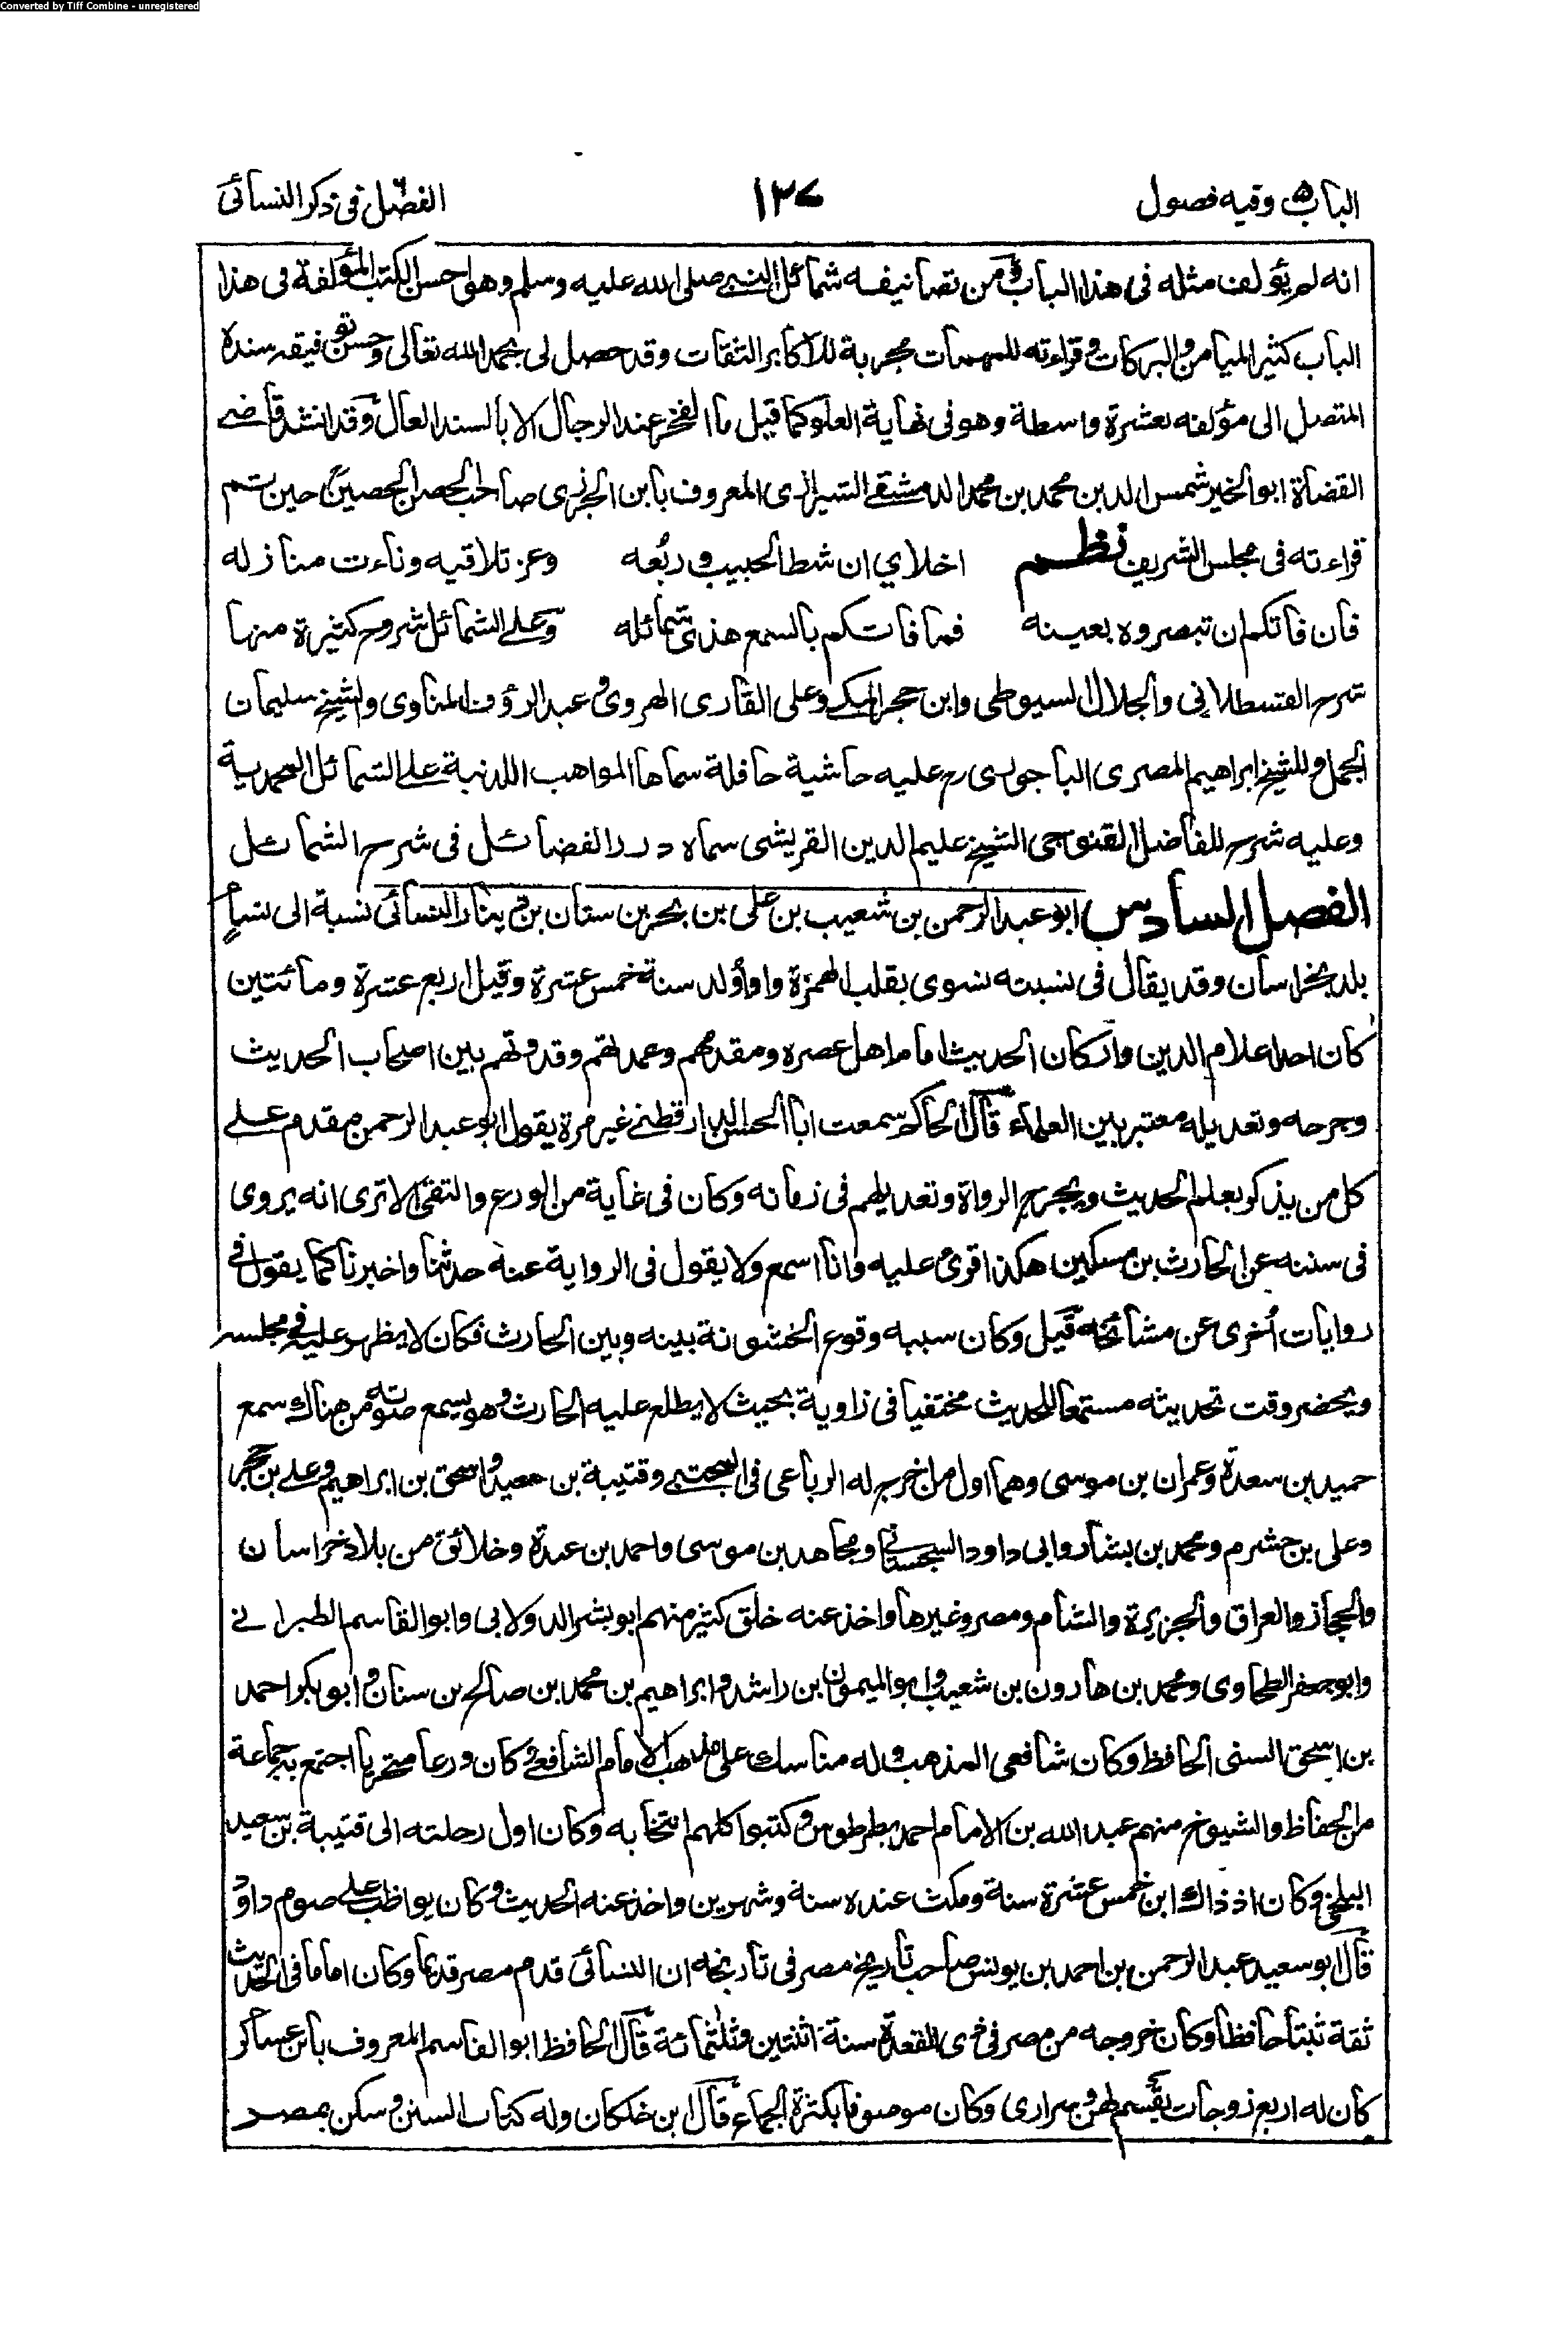 Converted by Tiff Combine - unregistered
الباب ٥ وفيه فصول ١٣٧ الفصل ٦ فى ذكر النسائى
انه لم يؤلف مثله فى هذا الباب ومن تصانيفه شمائل النبى صلى الله عليه وسلم وهو احسن الكتب المؤلفة فى هذا
الباب كثير الميامن والبركات وقراءته للمهمات مجربة للاكابر الثقات وقد حصل لى بحمد الله تعالى وحسن توفيقه سنده
المتصل الى مؤلفه بعشرة واسطة وهو فى نهاية العلو كما قيل ما الفخر عند الرجال الا بالسند العال وقد انشد قاضى
القضاة ابو الخير شمس الدين محمد بن محمد الدمشقى الشيرازى المعروف بابن الجزرى صاحب الحصن الحصين حين ستم
قراءته فى مجلس الشريف نظم اخلاي ان شط الحبيب وربُعه وعز تلاقيه وناءت منازله
فان فاتكم ان تبصروه بعينه فما فاتكم بالسمع هذى شمائله وعلى الشمائل شروح كثيرة منها
شرح القسطلانى والجلال السيوطى وابن حجر المكى وعلى القارى الهروى وعبد الرؤف المناوى والشيخ سليمان
الجمل وللشيخ ابراهيم المصرى الباجورى رح عليه حاشية حافلة سماها المواهب اللدنية على الشمائل المحمدية
وعليه شرح للفاضل القنوجى الشيخ عليم الدين القريشى سماه درر الفضائل فى شرح الشمائل
الفصل السادس ابو عبد الرحمن بن شعيب بن على بن بحر بن سنان بن دينار النسائى نسبة الى نسأ
بلد بخراسان وقد يقال فى نسبته نسوى بقلب الهمزة واوا ولد سنة خمس عشرة وقيل اربع عشرة ومائتين
كان احد اعلام الدين واركان الحديث امام اهل عصره ومقدمهم وعمدتهم وقدوتهم بين اصحاب الحديث
وجرحه وتعديله معتبر بين العلماء قال الحاكم سمعت ابا الحسن الدارقطنى غير مرة يقول ابو عبد الرحمن مقدم على
كل من يذكر بعلم الحديث وبجرح الرواة وتعديلهم فى زمانه وكان فى غاية من الورع والتقى الا ترى انه يروى
فى سننه عن الحارث بن مسكين هكذا قرئ عليه وانا اسمع ولا يقول فى الرواية عنه حدثنا واخبرنا كما يقول فى
روايات أخرى عن مشائخه قيل وكان سببه وقوع الخشونة بينه وبين الحارث فكان لا يظهر عليه فى مجلسه
ويحضر وقت تحديثه مستمعا للحديث مختفيا فى زاوية بحيث لا يطلع عليه الحارث وهو يسمع صوته من هناك سمع
حميد بن سعدة وعمران بن موسى وهما اول من خرج له الرباعى فى المجتبى وقتيبة بن سعيد واسحق بن ابراهيم وعلى بن حجر
وعلى بن خشرم ومحمد بن بشار وابى داود السجستانى ومجاهد بن موسى واحمد بن عبدة وخلائق من بلاد خراسان
والحجاز والعراق والجزيرة والشام ومصر وغيرها واخذ عنه خلق كثير منهم ابو بشر الدولابى وابو القاسم الطبرانى
وابو جعفر الطحاوى ومحمد بن هارون بن شعيب وابو الميمون بن راشد وابراهيم بن محمد بن صالح بن سنان وابو بكر احمد
بن اسحق السنى الحافظ وكان شافعى المذهب وله مناسك على مذهب الامام الشافعى وكان ورعا متحريا اجتمع به جماعة
من الحفاظ والشيوخ منهم عبد الله بن الامام احمد بطرطوس وكتبوا كلهم انتخابه وكان اول رحلته الى قتيبة بن سعيد
البلخى وكان اذ ذاك ابن خمس عشرة سنة ومكث عنده سنة وشهرين واخذ عنه الحديث وكان يواظب على صوم داؤد
قال ابو سعيد عبد الرحمن بن احمد بن يونس صاحب تاريخ مصر فى تاريخه ان النسائى قدم مصر قديما وكان اماما فى الحديث
ثقة ثبتا حافظا وكان خروجه من مصر فى ذى القعدة سنة اثنتين وثلثمائة قال الحافظ ابو القاسم المعروف بابن عساكر
كان له اربع زوجات يقسم لهن وسرارى وكان موصوفا بكثرة الجماع قال ابن خلكان وله كتاب السنن وسكن بمصر